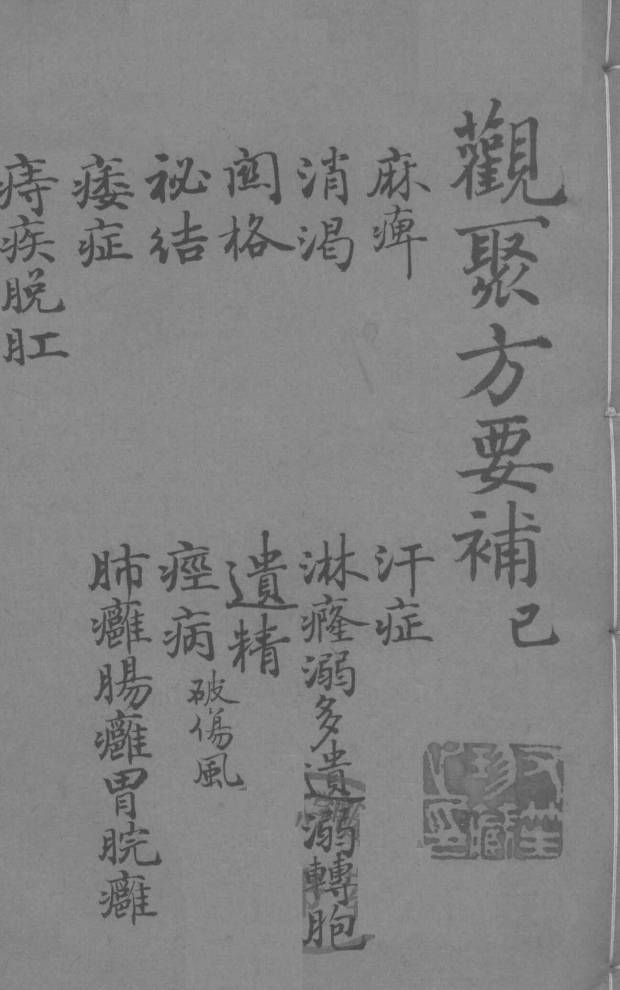 觀聚方要補 己
麻痺
消渴
関格
祕結
痿症
痔疾脱肛
汗症
淋癃溺多遺溺轉胞
遺精
痙病 破傷風
肺癰腸癰胃脘癰